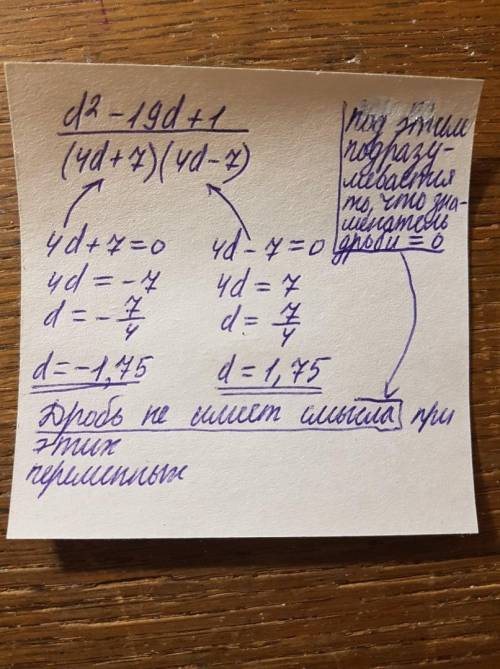 d² - 19d + 1
(4d+7)(4d-7)
под этим
подразу-
мевается
то, что зна-
менатель
дроби = 0
4d+7=0
4d = -7
d = - 7/4
d = -1,75
4d - 7 = 0
4d = 7
d = 7/4
d = 1,75
Дробь не имеет смысла при
этих
переменных